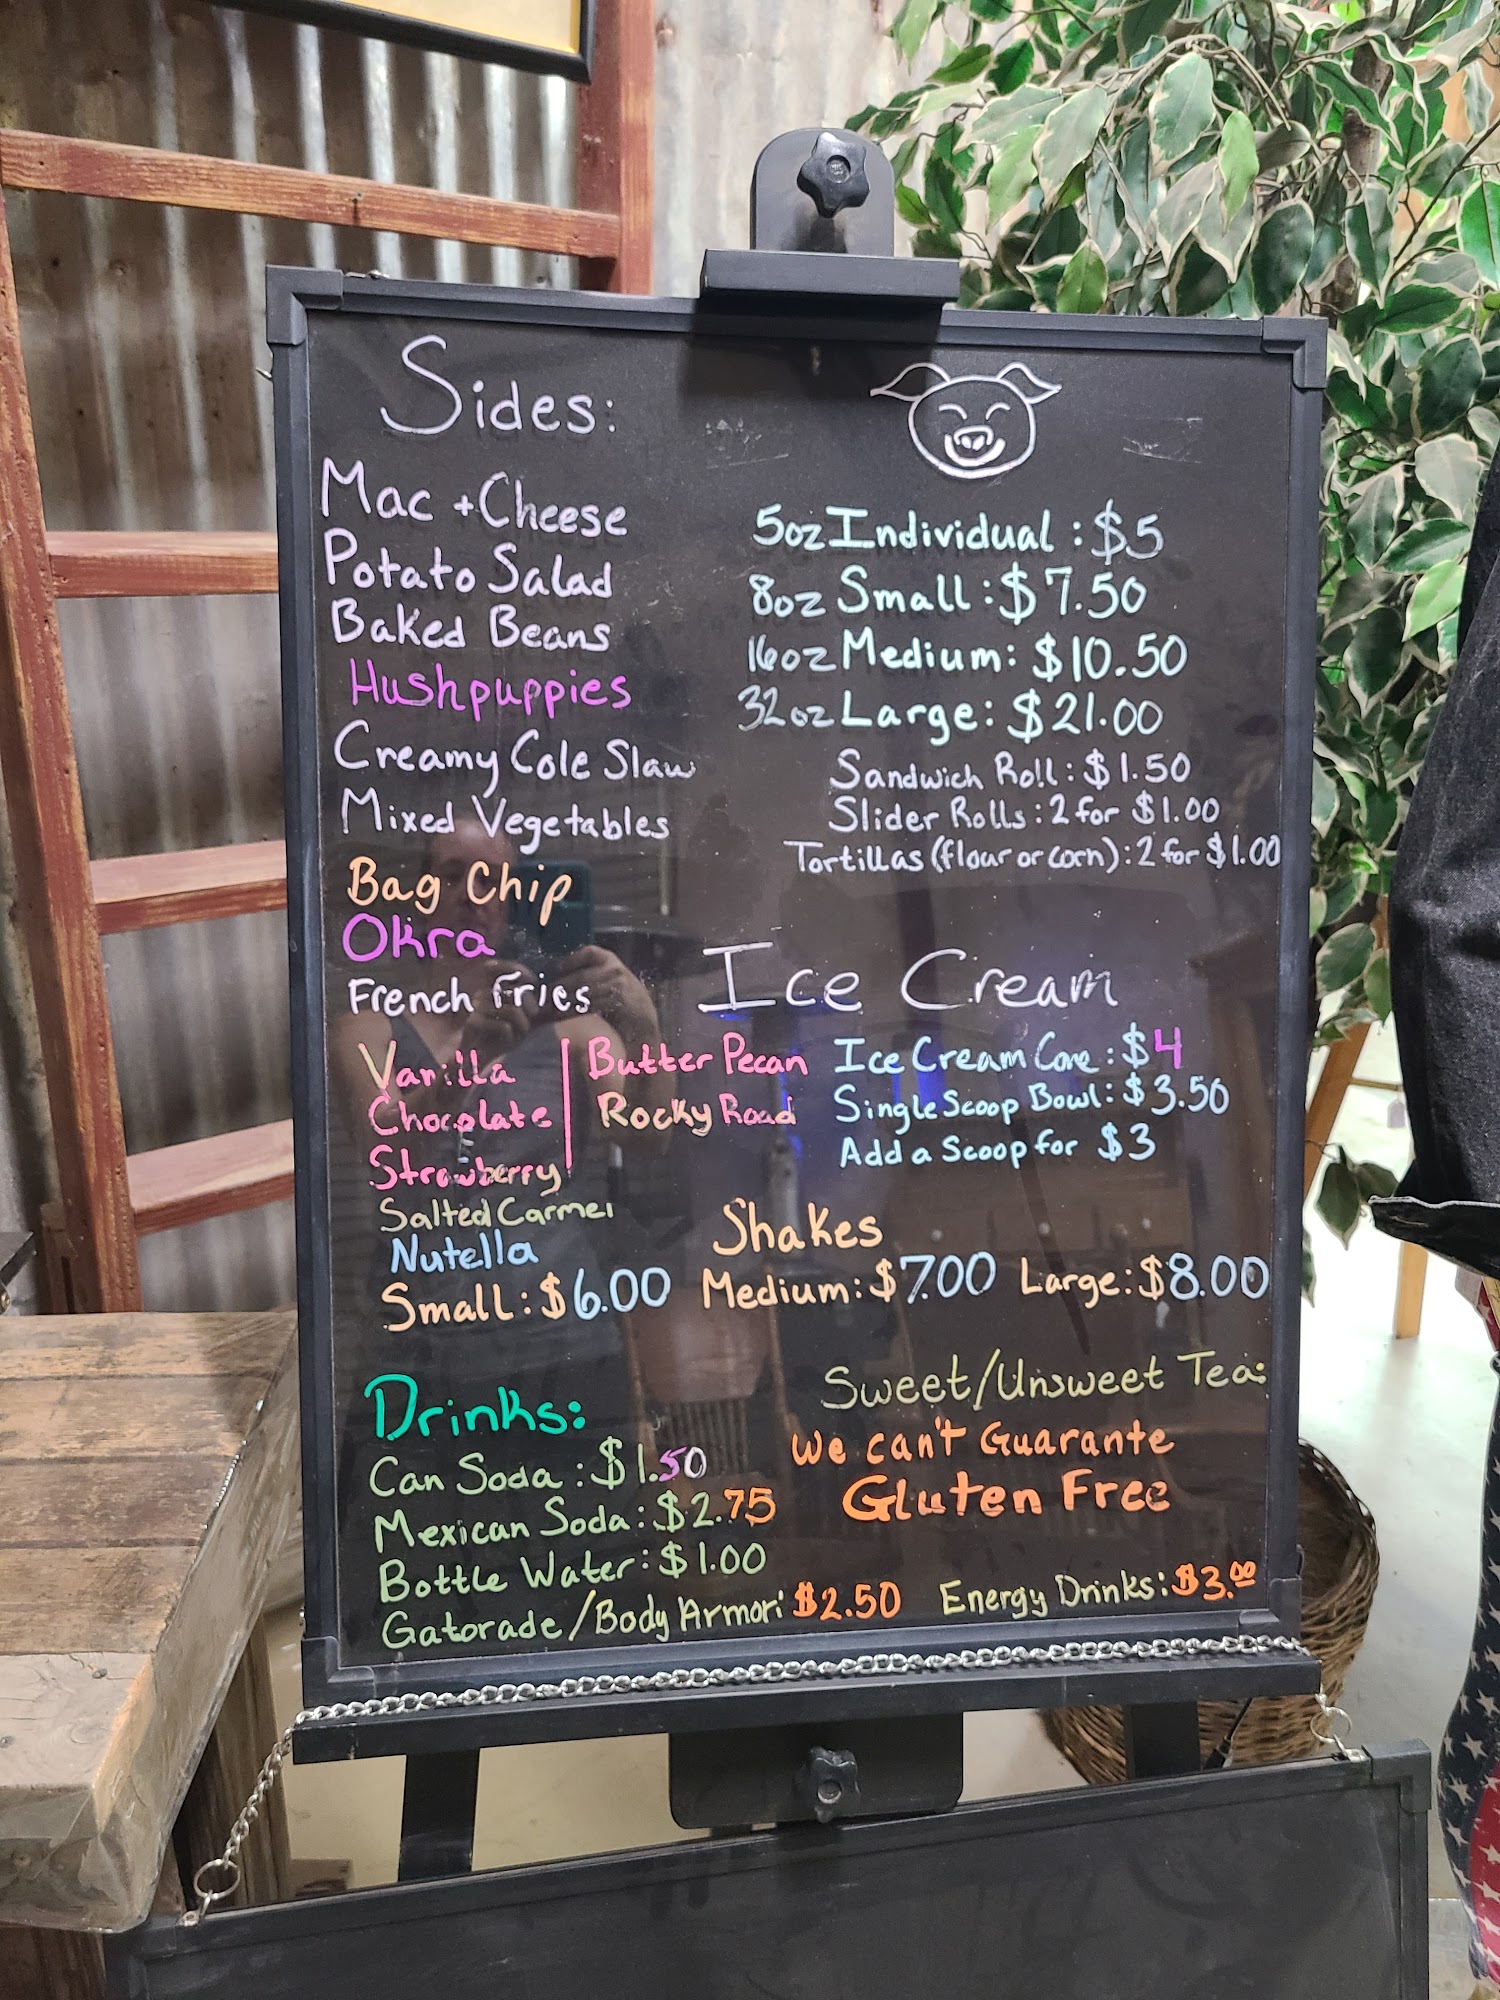 Sides:
Mac + Cheese
Potato Salad
Baked Beans
Hushpuppies
Creamy Cole Slaw
Mixed Vegetables
Bag Chip
Okra
French Fries
5oz Individual : $5
8oz Small : $7.50
16oz Medium : $10.50
32oz Large : $21.00
Sandwich Roll : $1.50
Slider Rolls : 2 for $1.00
Tortillas (flour or corn) : 2 for $1.00
Ice Cream
Vanilla
Chocolate
Strawberry
Salted Carmel
Nutella
Butter Pecan
Rocky Road
Ice Cream Cone : $4
Single Scoop Bowl : $3.50
Add a Scoop for $3
Shakes
Small : $6.00 Medium : $7.00 Large : $8.00
Drinks:
Can Soda : $1.50
Mexican Soda : $2.75
Bottle Water : $1.00
Gatorade / Body Armor: $2.50 Energy Drinks : $3.00
Sweet/Unsweet Tea:
We can't Guarante
Gluten Free